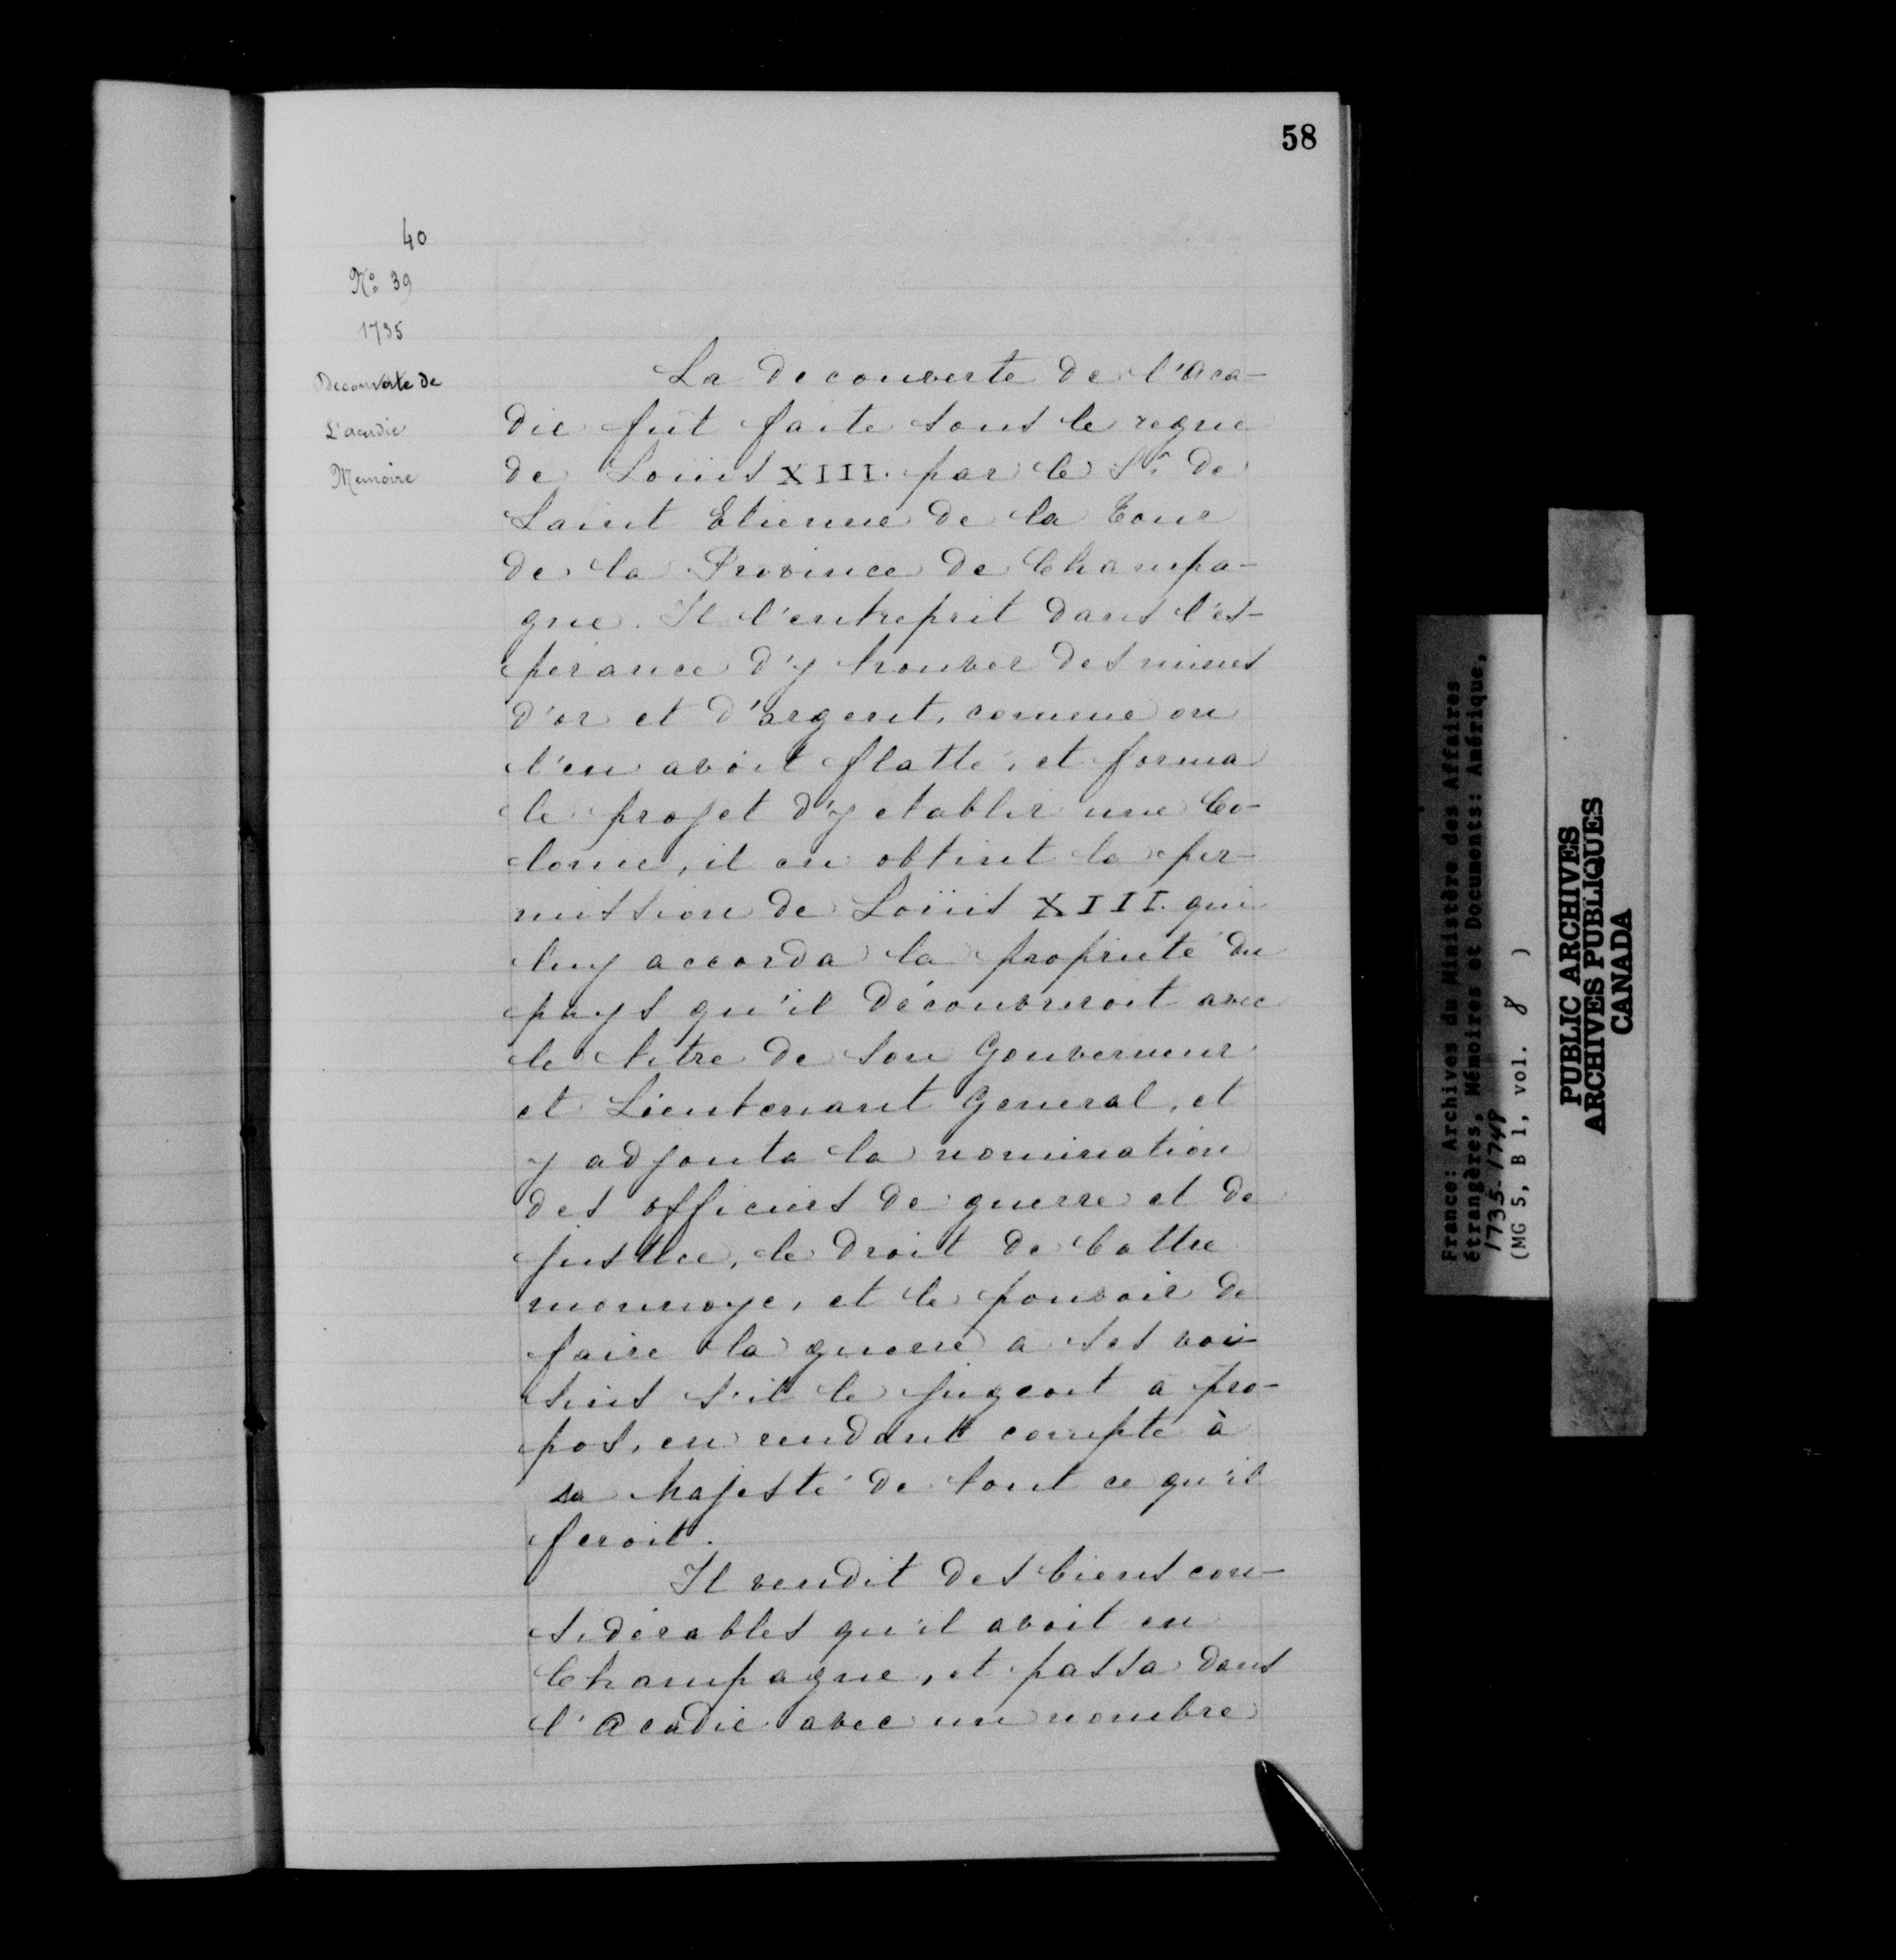 58
40
No. 39
1735
Decouverte de
L'acadie
Memoire
La decouverte de l'Aca-
die fût faite sous le regne
de Loüis XIII. par le Sr. de
Saint Etienne de la Tour
de la Province de Champa-
gne. Il l'entreprit dans l'es-
perance d'y trouver des mines
d'or et d'argent, comme on
l'en avoit flatté, et forma
le projet d'y etablir une Co-
lonie, il en obtint la per-
mission de Loüis XIII. qui
luy accorda la proprieté du
pays qu'il découvriroit avec
le titre de son Gouverneur
et Lieutenant General, et
y adjouta la nomination
des officiers de guerre et de
justice, le droit de battre
monnoye, et le pouvoir de
faire la guerre a ses voi-
sins s'il le jugeoit a pro-
pos, en rendant compte à
sa Majesté de tout ce qu'il
feroit.
Il vendit des biens con-
siderables qu'il avoit en
Champagne, et passa dans
l'Acadie avec un nombre
France: Archives du Ministère des Affaires
étrangères, Mémoires et Documents: Amérique,
1735-1748
(MG 5, B 1, vol. 8 )
PUBLIC ARCHIVES
ARCHIVES PUBLIQUES
CANADA